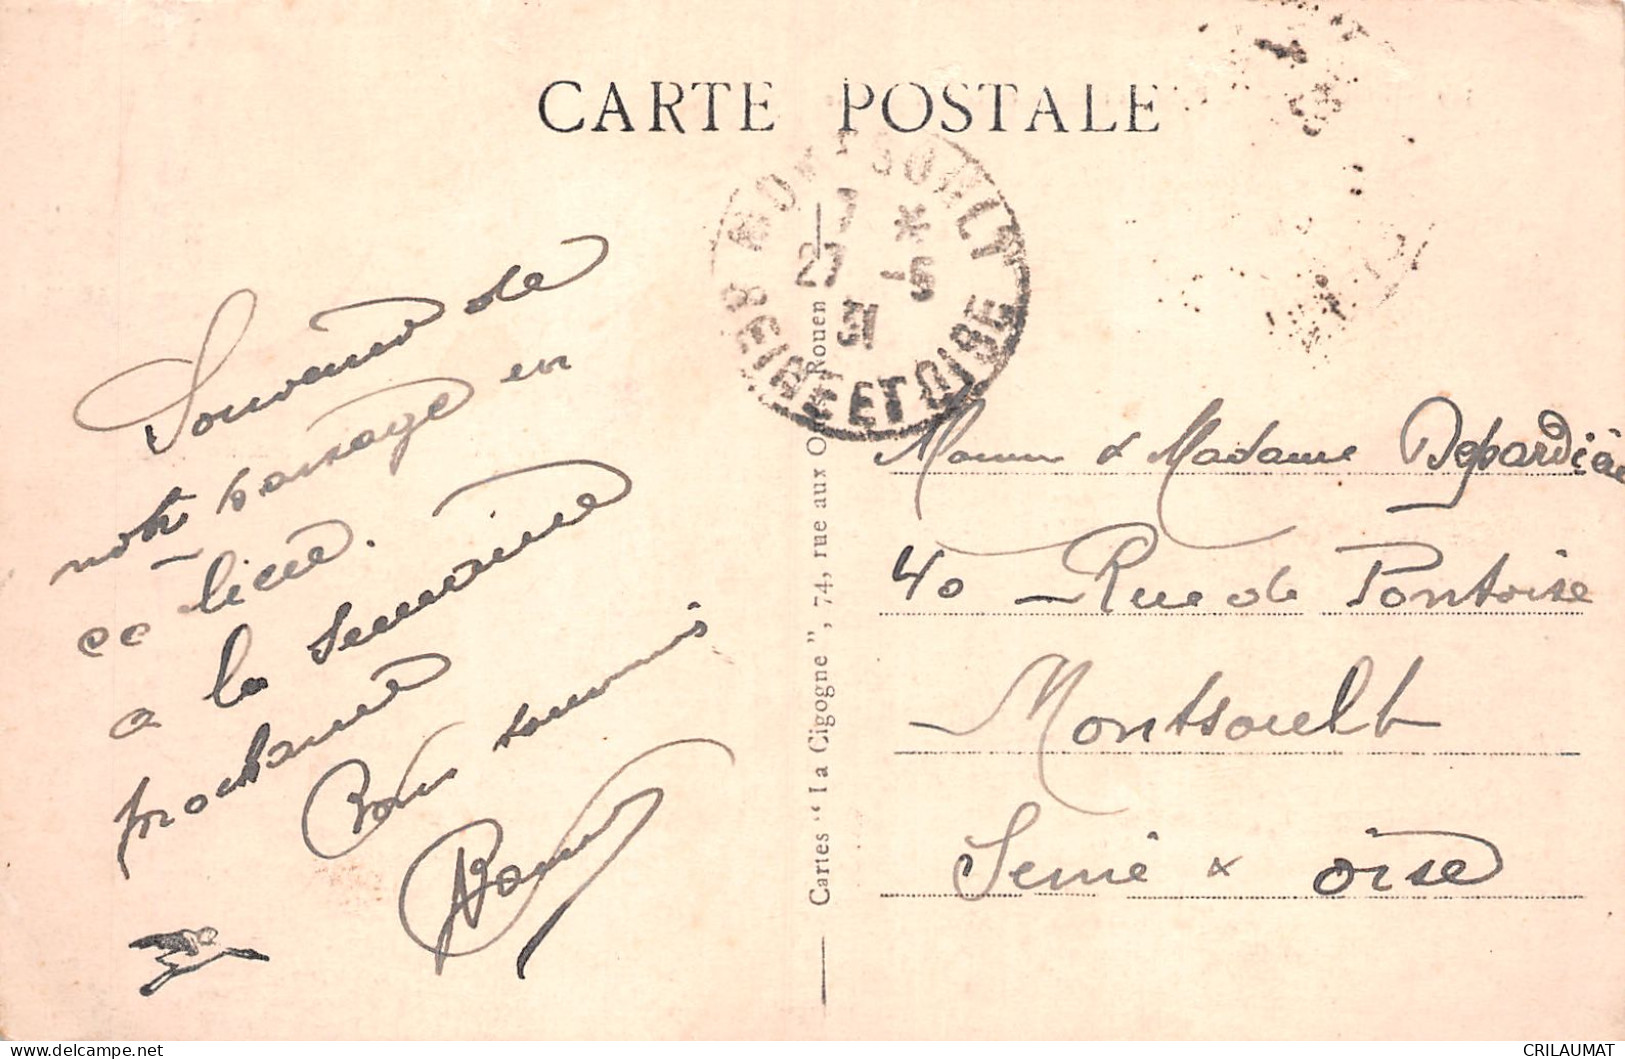 CARTE POSTALE
MONTSOULT
7 *
27 -5
31
SEINE ET OISE
Souvenir de
notre passage en
ce lieu.
a la semaine
prochaine
Bons souvenirs
Cartes "La Cigogne", 74, rue aux Ours, Rouen
& Madame Depardieu
40 Rue de Pontoise
Montsoult
Seine & Oise
CRILAUMAT